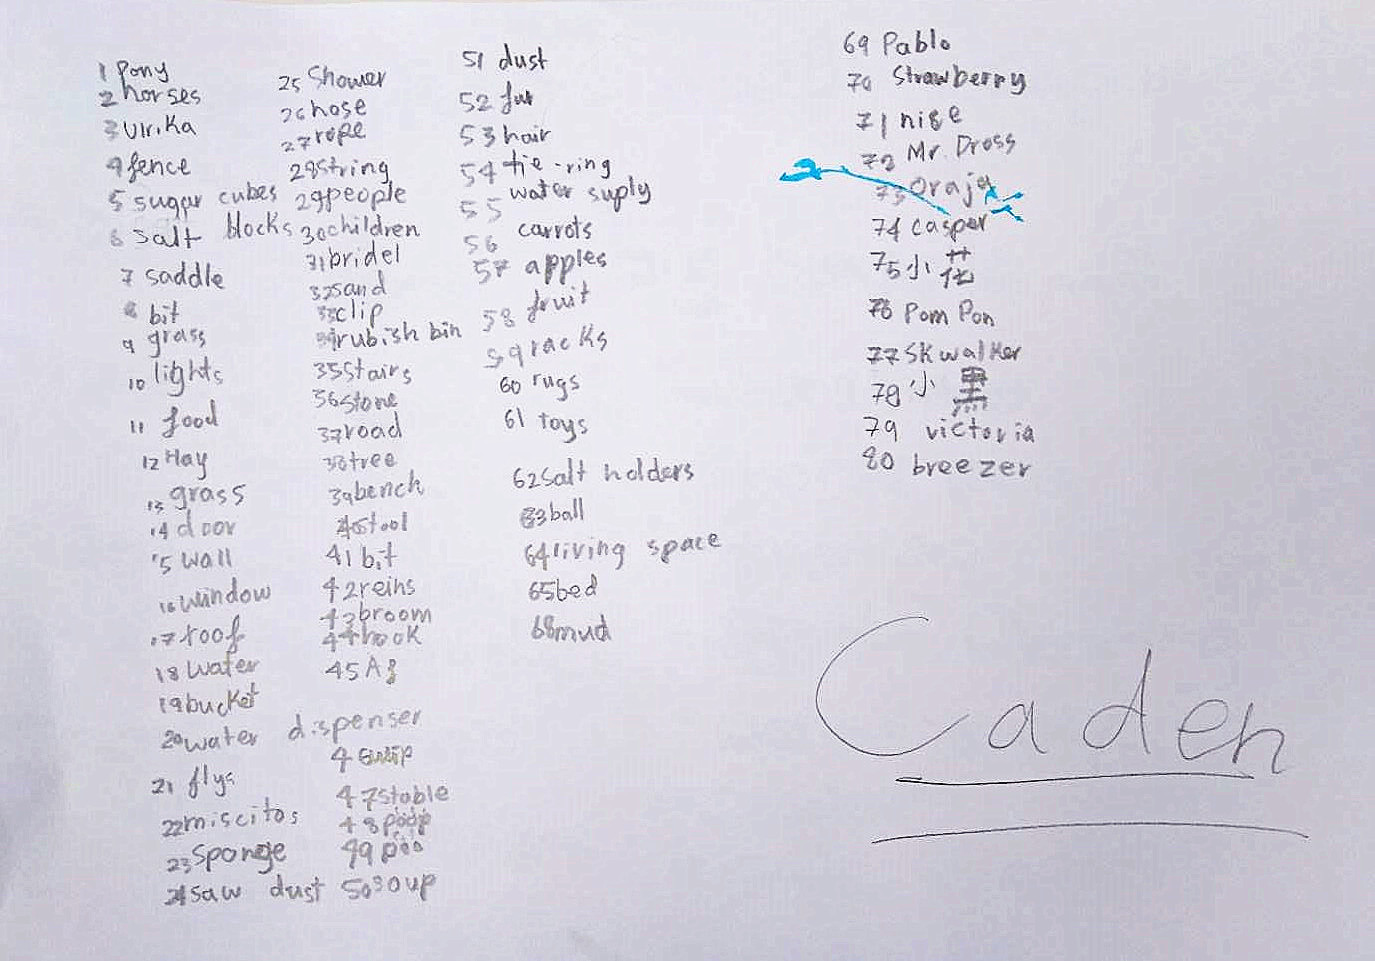 1 Pony
2 horses
3 Ulrika
4 fence
5 sugar cubes
6 Salt blocks
7 saddle
8 bit
9 grass
10 lights
11 food
12 Hay
13 grass
14 door
15 wall
16 window
17 roof
18 water
19 bucket
20 water dispenser
21 flys
22 miscitos
23 Sponge
24 saw dust
25 Shower
26 hose
27 rope
28 string
29 people
30 children
31 bridel
32 sand
33 clip
34 rubish bin
35 Stairs
36 stone
37 road
38 tree
39 bench
40 stool
41 bit
42 reins
43 broom
44 hook
45
4
47 stable
48 poop
49 poo
50 soup
51 dust
52 fur
53 hair
54 tie-ring
55 water suply
56 carrots
57 apples
58 fruit
59 racks
60 rugs
61 toys
62 Salt holders
63 ball
64 living space
65 bed
68 mud
69 Pablo
70 Strawberry
71 nise
72 Mr. Dross
73
74 casper
75 小花
76 Pom Pon
77 Skwalker
78 小黑
79 victoria
80 breezer
Caden